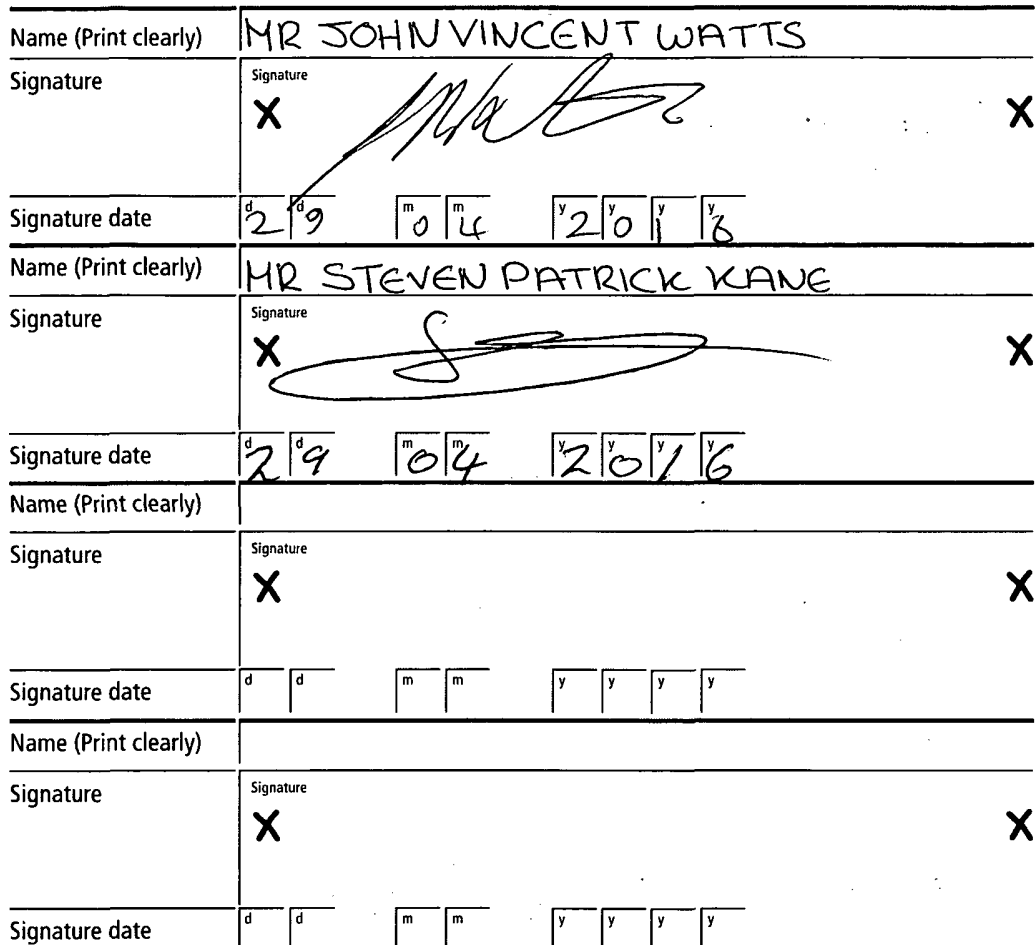 Name (Print clearly) MR JOHN VINCENT WATTS
Signature Signature
X X
Signature date d 2 d 9 m 0 m 4 y 2 y 0 y 1 y 6
Name (Print clearly) MR STEVEN PATRICK KANE
Signature Signature
X X
Signature date d 2 d 9 m 0 m 4 y 2 y 0 y 1 y 6
Name (Print clearly)
Signature Signature
X X
Signature date d d m m y y y y
Name (Print clearly)
Signature Signature
X X
Signature date d d m m y y y y